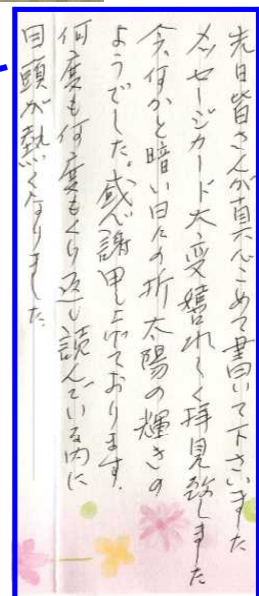 先日皆さんが真心こめて書いて下さいました
メッセージカード大変嬉れしく拝見致しました
今、何かと暗い日々の折太陽の輝きの
ようでした。感謝申し上げております。
何度も何度もくり返し読んでいる内に
目頭が熱くなりました。